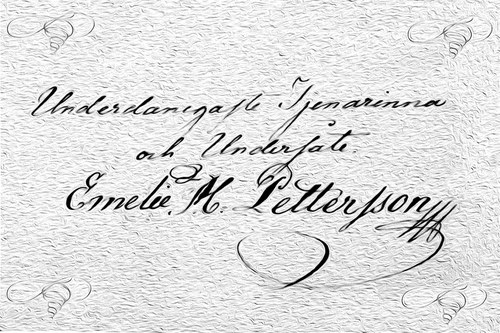 Underdanigaste Tjenarinna
och Undersåte.
Emelie. M. Pettersson